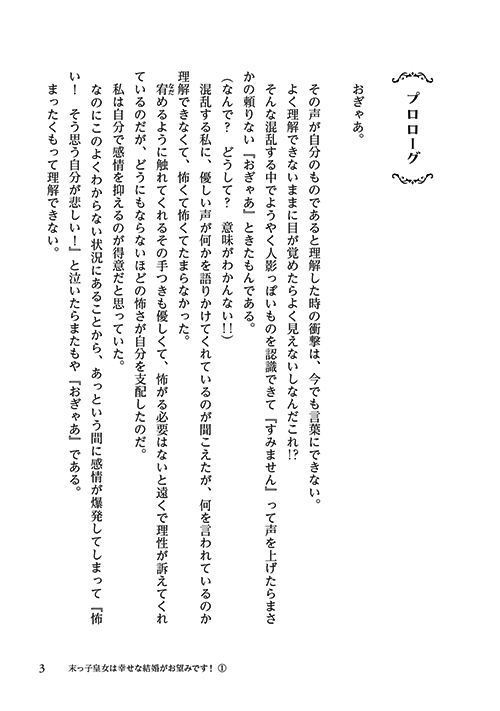 プロローグ
おぎゃあ。
その声が自分のものであると理解した時の衝撃は、今でも言葉にできない。
よく理解できないままに目が覚めたらよく見えないしなんだこれ!?
そんな混乱する中でようやく人影っぽいものを認識できて『すみません』って声を上げたらまさ
かの頼りない『おぎゃあ』ときたもんである。
(なんで? どうして? 意味がわかんない!!)
混乱する私に、優しい声が何かを語りかけてくれているのが聞こえたが、何を言われているのか
理解できなくて、怖くて怖くてたまらなかった。
宥めるように触れてくれるその手つきも優しくて、怖がる必要はないと遠くで理性が訴えてくれ
なだ
ているのだが、どうにもならないほどの怖さが自分を支配したのだ。
私は自分で感情を抑えるのが得意だと思っていた。
なのにこのよくわからない状況にあることから、あっという間に感情が爆発してしまって『怖
い! そう思う自分が悲しい!』と泣いたらまたもや『おぎゃあ』である。
まったくもって理解できない。
3 末っ子皇女は幸せな結婚がお望みです! ①